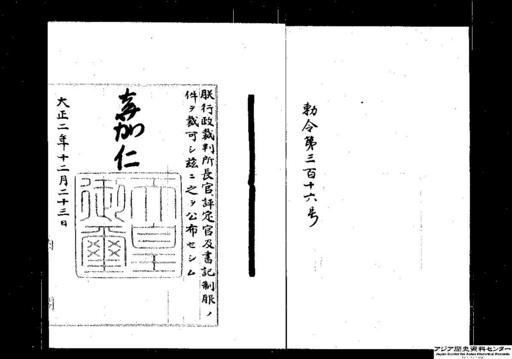 勅令第三百十六号
朕行政裁判所長官、評定官及書記制服ノ
件ヲ裁可シ玆ニ之ヲ公布セシム
嘉仁
天皇
御璽
大正二年十二月二十三日
アジア歴史資料センター
Japan Center for Asian Historical Records